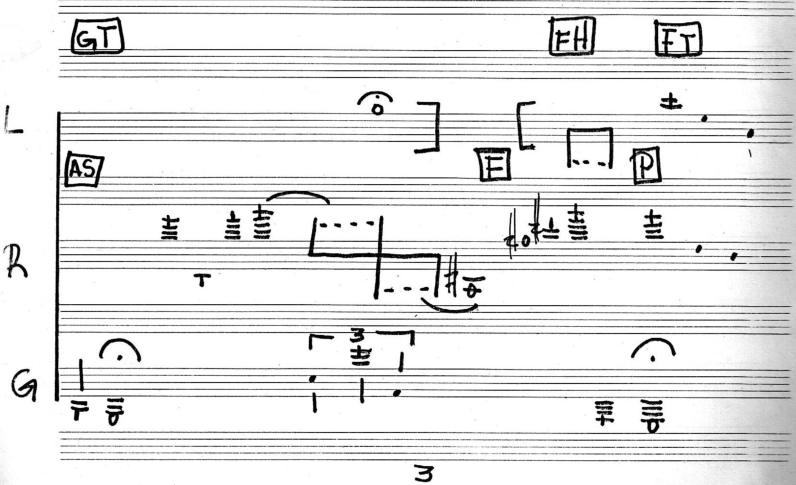 GT FH FT
L
AS P
R
3
G
3